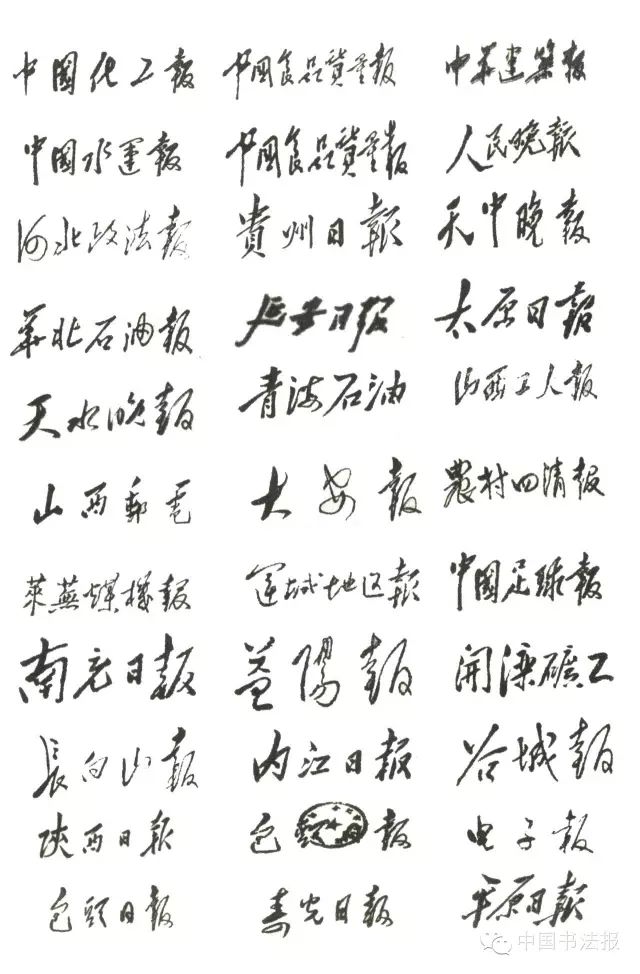 中國化工報 中國食品質量報 中華建築報
中國水運報 中國食品質量報 人民晚報
河北政法報 貴州日報 天中晚報
華北石油報 延安日報 太原日報
天水晚報 青海石油 山西工人報
山西郵電 大安報 農村四清報
萊蕪煤機報 運城地区報 中國足球報
南充日報 益陽報 開灤礦工
長白山報 内江日報 谷城報
陝西日報 包 報 电子報
包頭日報 壽光日報 平原日報
中国书法报